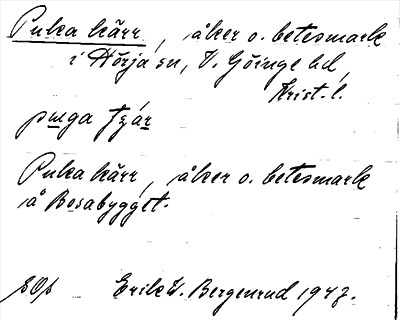 Puka kärr, åker o. betesmark
i Hörja sn, V. Göinge hd,
Krist. l.
puga
Puka kärr, åker o. betesmark
å Bosabygget.
Erik W. Bergenrud 1947.